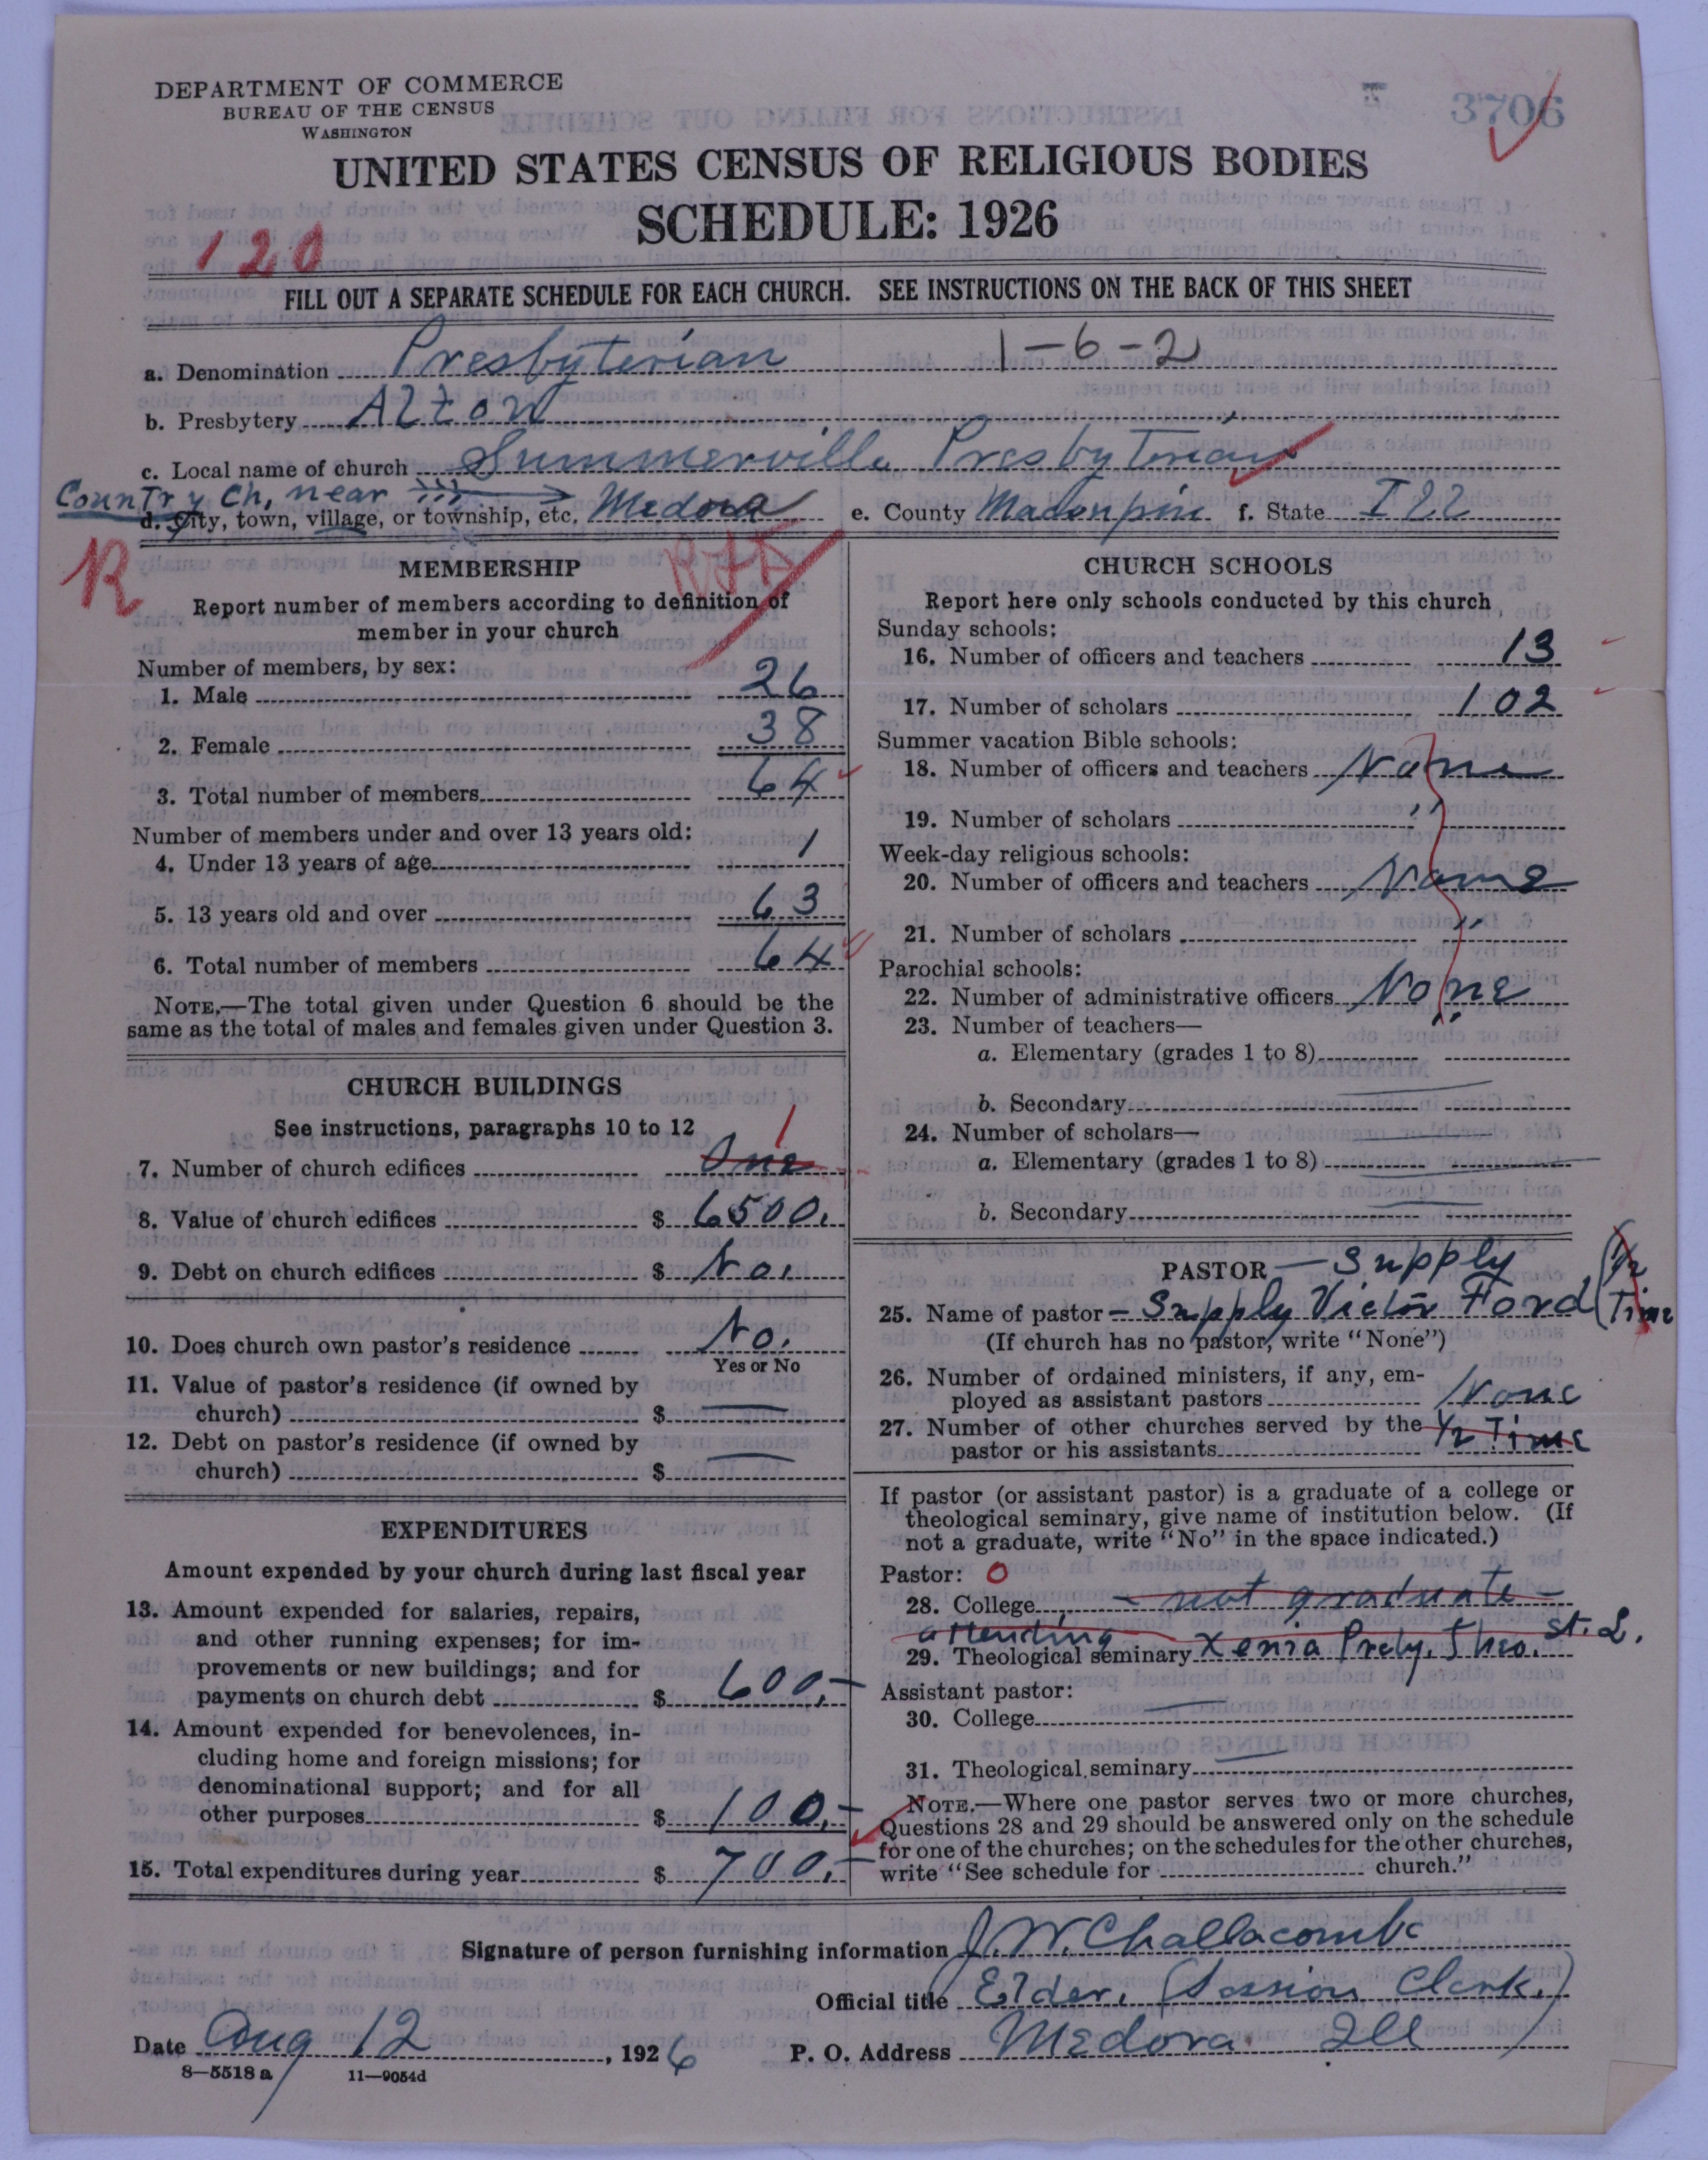 DEPARTMENT OF COMMERCE
BUREAU OF THE CENSUS
WASHINGTON
3706
UNITED STATES CENSUS OF RELIGIOUS BODIES
SCHEDULE: 1926
120
FILL OUT A SEPARATE SCHEDULE FOR EACH CHURCH. SEE INSTRUCTIONS ON THE BACK OF THIS SHEET
a. Denomination Presbyterian 1-6-2
b. Presbytery Alton
c. Local name of church Summerville Presbyterian
Country Ch, near
d. City, town, village, or township, etc. Medora e. County f. State Ill
R
MEMBERSHIP
Report number of members according to definition of
member in your church
Number of members, by sex:
1. Male 26
2. Female 38
3. Total number of members 64
Number of members under and over 13 years old:
4. Under 13 years of age 1
5. 13 years old and over 63
6. Total number of members 64
NOTE.—The total given under Question 6 should be the
same as the total of males and females given under Question 3.
CHURCH BUILDINGS
See instructions, paragraphs 10 to 12
1
7. Number of church edifices One
8. Value of church edifices $ 6500.
9. Debt on church edifices $ No.
10. Does church own pastor's residence No.
Yes or No
11. Value of pastor's residence (if owned by
church) $ —
12. Debt on pastor's residence (if owned by
church) $ —
EXPENDITURES
Amount expended by your church during last fiscal year
13. Amount expended for salaries, repairs,
and other running expenses; for im-
provements or new buildings; and for
payments on church debt $ 600.—
14. Amount expended for benevolences, in-
cluding home and foreign missions; for
denominational support; and for all
other purposes $ 100.—
15. Total expenditures during year $ 700.—
CHURCH SCHOOLS
Report here only schools conducted by this church
Sunday schools:
16. Number of officers and teachers 13
17. Number of scholars 102
Summer vacation Bible schools:
18. Number of officers and teachers None
19. Number of scholars "
Week-day religious schools:
20. Number of officers and teachers None
21. Number of scholars "
Parochial schools:
22. Number of administrative officers None
23. Number of teachers— "
a. Elementary (grades 1 to 8)
b. Secondary
24. Number of scholars—
a. Elementary (grades 1 to 8)
b. Secondary
PASTOR — Supply
25. Name of pastor – Supply Victor Ford (1/2 Time
(If church has no pastor, write "None")
26. Number of ordained ministers, if any, em-
ployed as assistant pastors None
27. Number of other churches served by the 1/2 Time
pastor or his assistants
If pastor (or assistant pastor) is a graduate of a college or
theological seminary, give name of institution below. (If
not a graduate, write "No" in the space indicated.)
Pastor: 0
28. College – not graduate –
attending –
29. Theological seminary Xenia Presby. Theo. St. L.
Assistant pastor:
30. College —
31. Theological seminary —
NOTE.—Where one pastor serves two or more churches,
Questions 28 and 29 should be answered only on the schedule
for one of the churches; on the schedules for the other churches,
write "See schedule for church."
Signature of person furnishing information J. W. Challacombe
Official title Elder. (Session Clerk.)
Date Aug 12, 1926 P. O. Address Medora. Ill
8—5518 a 11—9054d